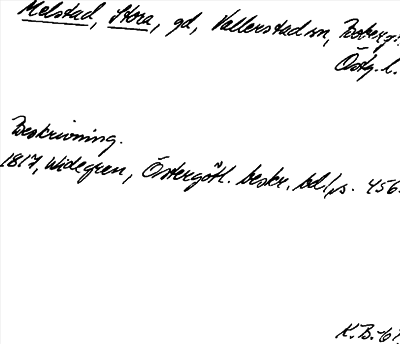 Melstad, Stora, gd, Vallerstad sn, Bobergs
Östg. l.
Beskrivning.
1817, Widegren, Östergötl. beskr. bd 1, s. 456.
K.B.-61